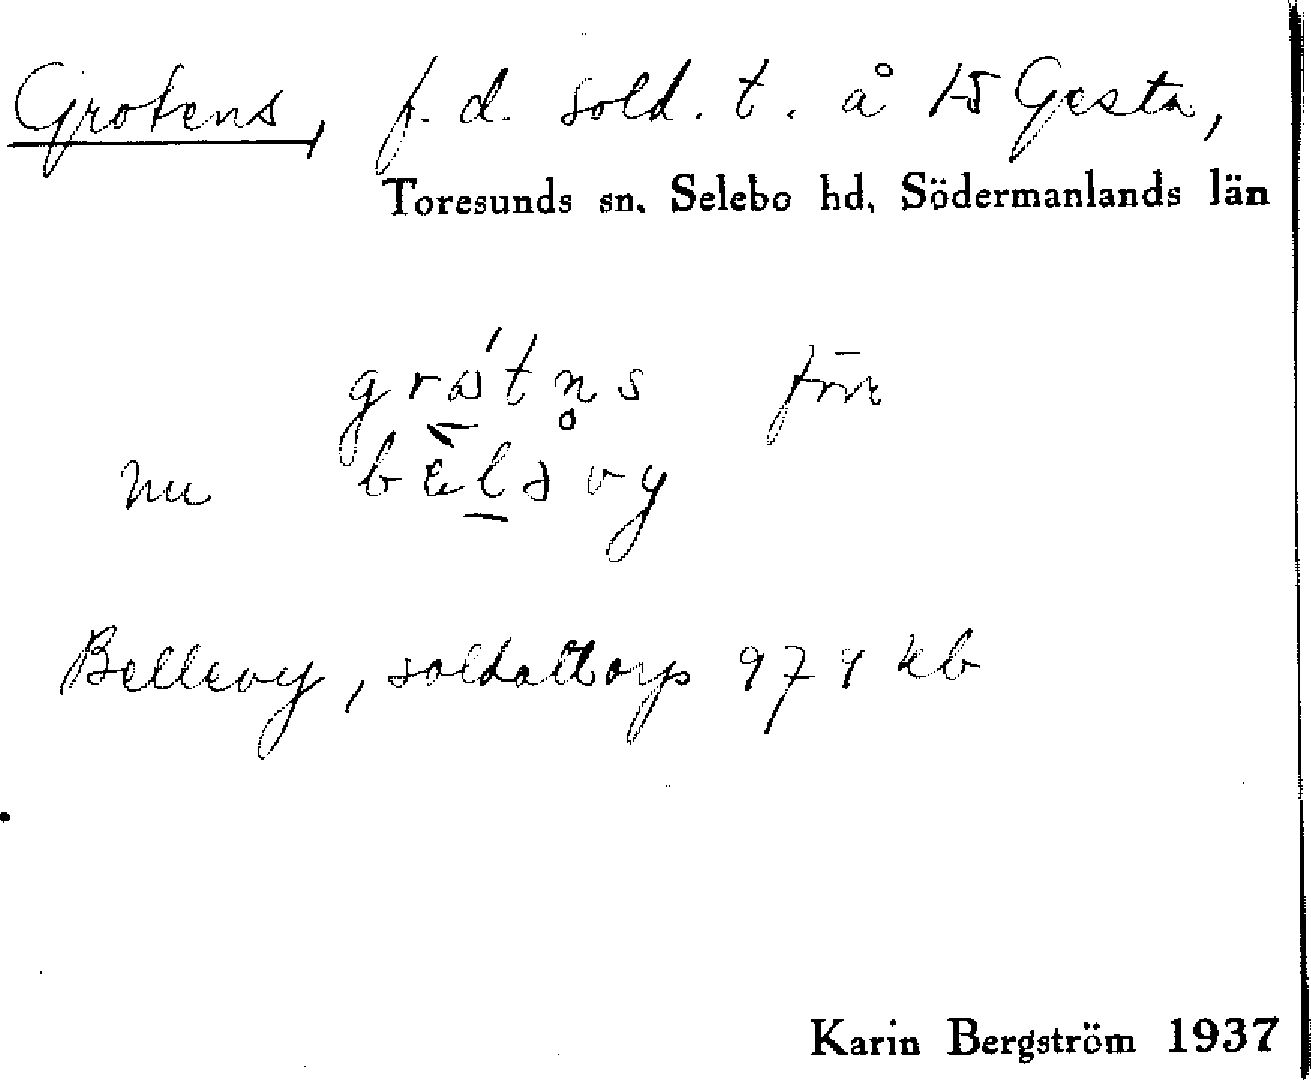 Grotens, f. d. sold. t. å 15 Gesta,
Toresunds sn. Selebo hd, Södermanlands län
grɷ́tn̥s förr
nu bɛ̀l̠əvy
Bellevy, soldattorp 979 kb
Karin Bergström 1937